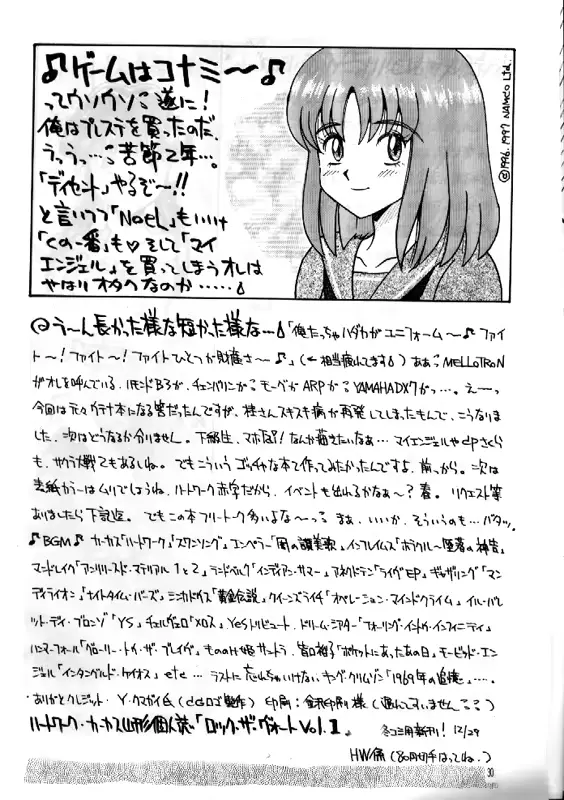 ♪ゲームはコナミ〜♪
ってウソウソ 遂に!
俺はプレステを買ったのだ。
うっうっ… 苦節2年…。
「ディセント」やるぞ〜!!
と言いつつ「NOeL」もいいけ
「くの一番」も♡そして「マイ
エンジェル」を買ってしまうオレは
やはりオタクなのか……
©1996.1997 NAMCO Ltd.
う〜ん長かった様な短かった様な…「俺たっちゃハダカがユニフォーム〜♪ファイ
ト〜!ファイト〜!ファイトひとつが財産さ〜♪」(←相当疲れてます)ああ MELLOTRON
がオレを呼んでいる。ハモンドB3が、チェンバリンが モーグが ARPが YAMAHA DX7がっ…。え〜っ
今回は元々 本になる筈だったんですが、桂さんスキスキ病が再発してしまったもんで、こうなりま
した。次はどうなるか分りません。下級生、マホ なんか描きたいなぁ… マイエンジェルやdpさくら
も、サクラ大戦てもあるしね。でもこういうゴッチャな本て作ってみたかったんですよ、前っから。次は
表紙カラーはムリでしょうね、ハートワーク赤字だから、イベントも出れるかなぁ〜?春。リクエスト等
ありましたら下記迄。でもこの本フリートーク多いよな〜っ まぁ、いいか、そういうのも…バタッ。
♪BGM♪カーカス「ハートワーク」「スワンソング」エンペラー「闇の讃美歌」、インフレイムス「 の神告」
マードレイク「アンリリースド・マテリアル1と2」ランドベルク「インディアン・サマー」アネクドテン「ライヴEP」ギャザリング「マン
ディライオン」「ナイトタイム・バーズ」ミシカドウス「黄金伝説」クイーンズライチ「オペレーション・マインドクライム」イル・バレ
ット・ディ・ブロンゾ「YS」チェルヴェロ「メロス」Yesトリビュート、ドリーム・シアター「フォーリング・イントゥ・インフィニティ」
ハンマーフォール「グローリー・トゥ・ザ・ブレイヴ」もののけ姫サントラ、皆口裕子「ポケットにあったあの日」モービッド・エン
ジェル「インタングルド・ケイオス」etc… ラストに忘れちゃいけない、キング・クリムゾン「1969年の追憶」…。
ありがとクレジット・Y・クマガイ氏(ddsロゴ製作)印刷: 印刷様(遅れてすいません)
ハートワーク・カーカス山形個人誌「ロック・ザ・ヴォートVol.1」 冬コミ用新刊! 12/29
HW係(80円切手はってね。)
30